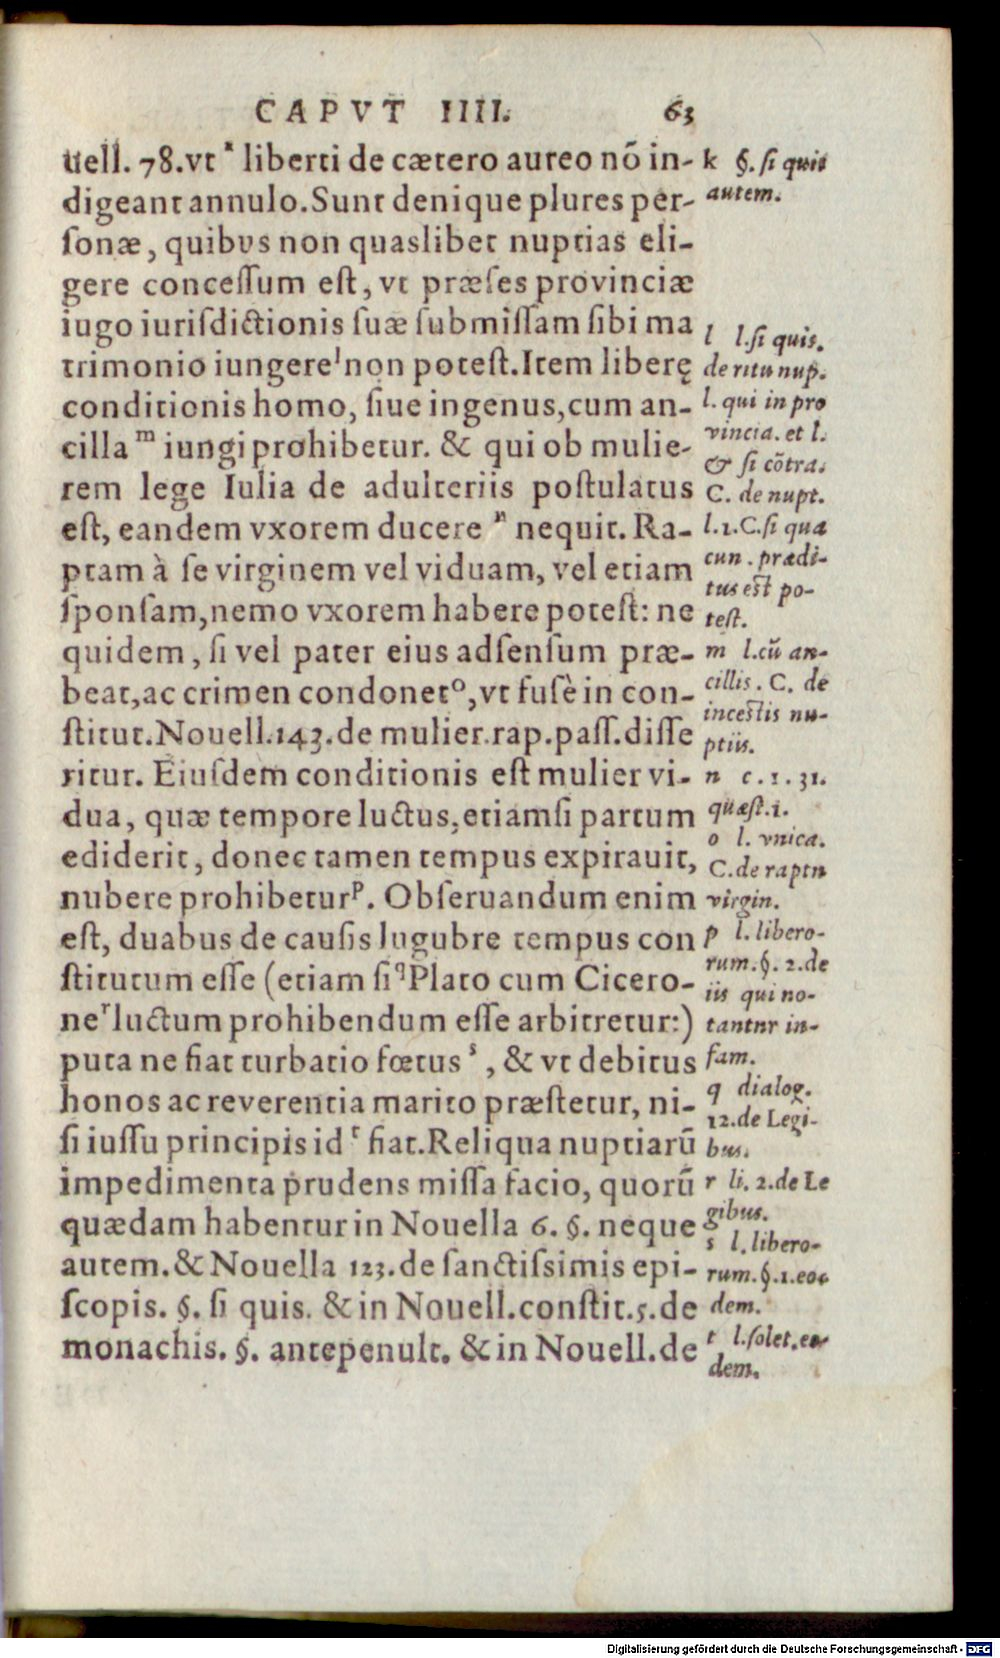 CAPVT IIII. 63
uell. 78. vt ᵏ liberti de cætero aureo nō in-
digeant annulo. Sunt denique plures per-
ſonæ, quibus non quaslibet nuptias eli-
gere conceſſum eſt, vt præſes provinciæ
iugo iuriſdictionis ſuæ ſubmiſſam ſibi ma
trimonio iungere ˡ non poteſt. Item liberę
conditionis homo, ſiue ingenus, cum an-
cilla ᵐ iungi prohibetur. & qui ob mulie-
rem lege Iulia de adulteriis poſtulatus
eſt, eandem vxorem ducere ⁿ nequit. Ra-
ptam à ſe virginem vel viduam, vel etiam
ſponſam, nemo vxorem habere poteſt: ne
quidem, ſi vel pater eius adſenſum præ-
beat, ac crimen condonet ᵒ, vt fuſè in con-
ſtitut. Nouell. 143. de mulier. rap. paſſ. diſſe
ritur. Eiuſdem conditionis eſt mulier vi-
dua, quæ tempore luctus, etiamſi partum
ediderit, donec tamen tempus expirauit,
nubere prohibetur ᵖ. Obſeruandum enim
eſt, duabus de cauſis lugubre tempus con
ſtitutum eſſe (etiam ſi ᑫ Plato cum Cicero-
ne ʳ luctum prohibendum eſſe arbitretur:)
puta ne fiat turbatio fœtus ˢ, & vt debitus
honos ac reverentia marito præſtetur, ni-
ſi iuſſu principis id ᵗ fiat. Reliqua nuptiarū
impedimenta prudens miſſa facio, quorū
quædam habentur in Nouella 6. §. neque
autem. & Nouella 123. de ſanctiſsimis epi-
ſcopis. §. ſi quis. & in Nouell. conſtit. 5. de
monachis. §. antepenult. & in Nouell. de
k §. ſi quis
autem.
l l. ſi quis.
de ritu nup.
l. qui in pro
vincia. et l.
& ſi cōtra.
C. de nupt.
l. 1. C. ſi qua
cun. prædi-
tus eſt po-
teſt.
m l. cū an-
cillis. C. de
inceſtis nu-
ptiis.
n c. 1. 31.
quæſt. 1.
o l. vnica.
C. de raptu
virgin.
p l. libero-
rum. §. 2. de
iis qui no-
tantur in-
fam.
q dialog.
12. de Legi-
bus.
r li. 2. de Le
gibus.
s l. libero-
rum. §. 1. eo
dem.
t l. ſolet. eo
dem.
Digitalisierung gefördert durch die Deutsche Forschungsgemeinschaft - DFG